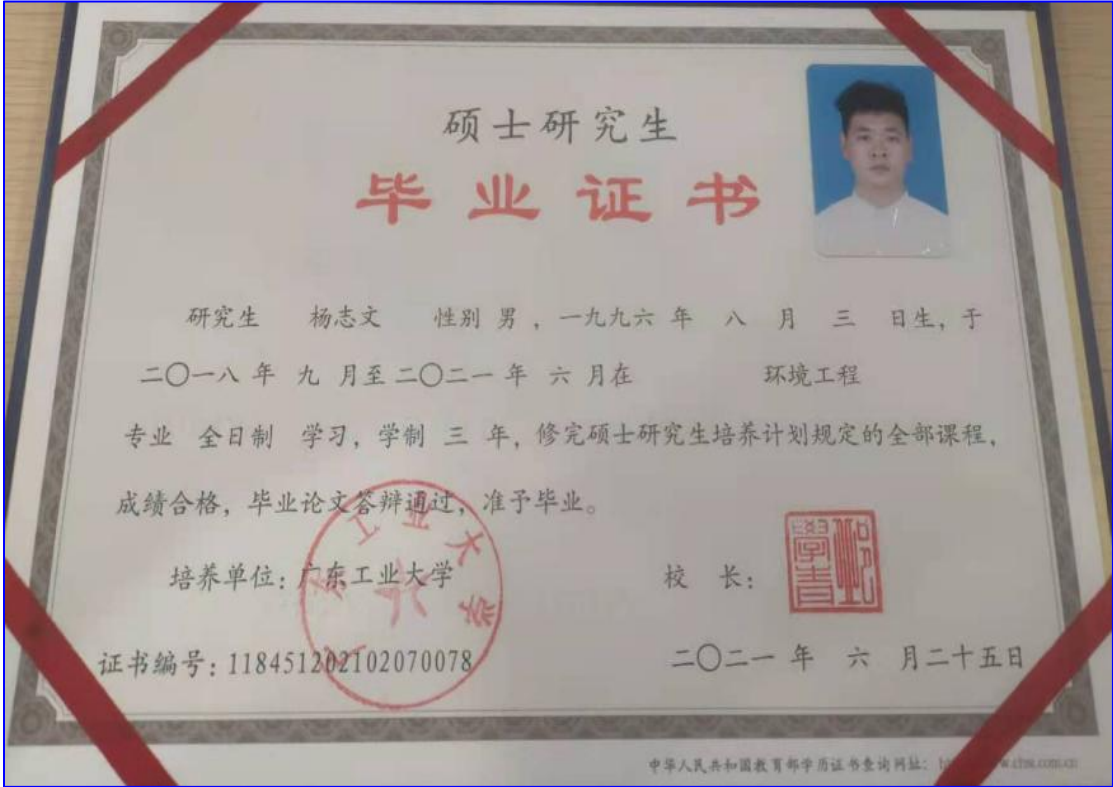 硕士研究生
毕业证书
研究生 杨志文 性别 男，一九九六 年 八 月 三 日生，于
二〇一八 年 九 月至 二〇二一 年 六 月在 环境工程
专业 全日制 学习，学制 三 年，修完硕士研究生培养计划规定的全部课程，
成绩合格，毕业论文答辩通过，准予毕业。
培养单位：广东工业大学
校 长：
证书编号：118451202102070078
二〇二一 年 六 月二十五日
中华人民共和国教育部学历证书查询网址：